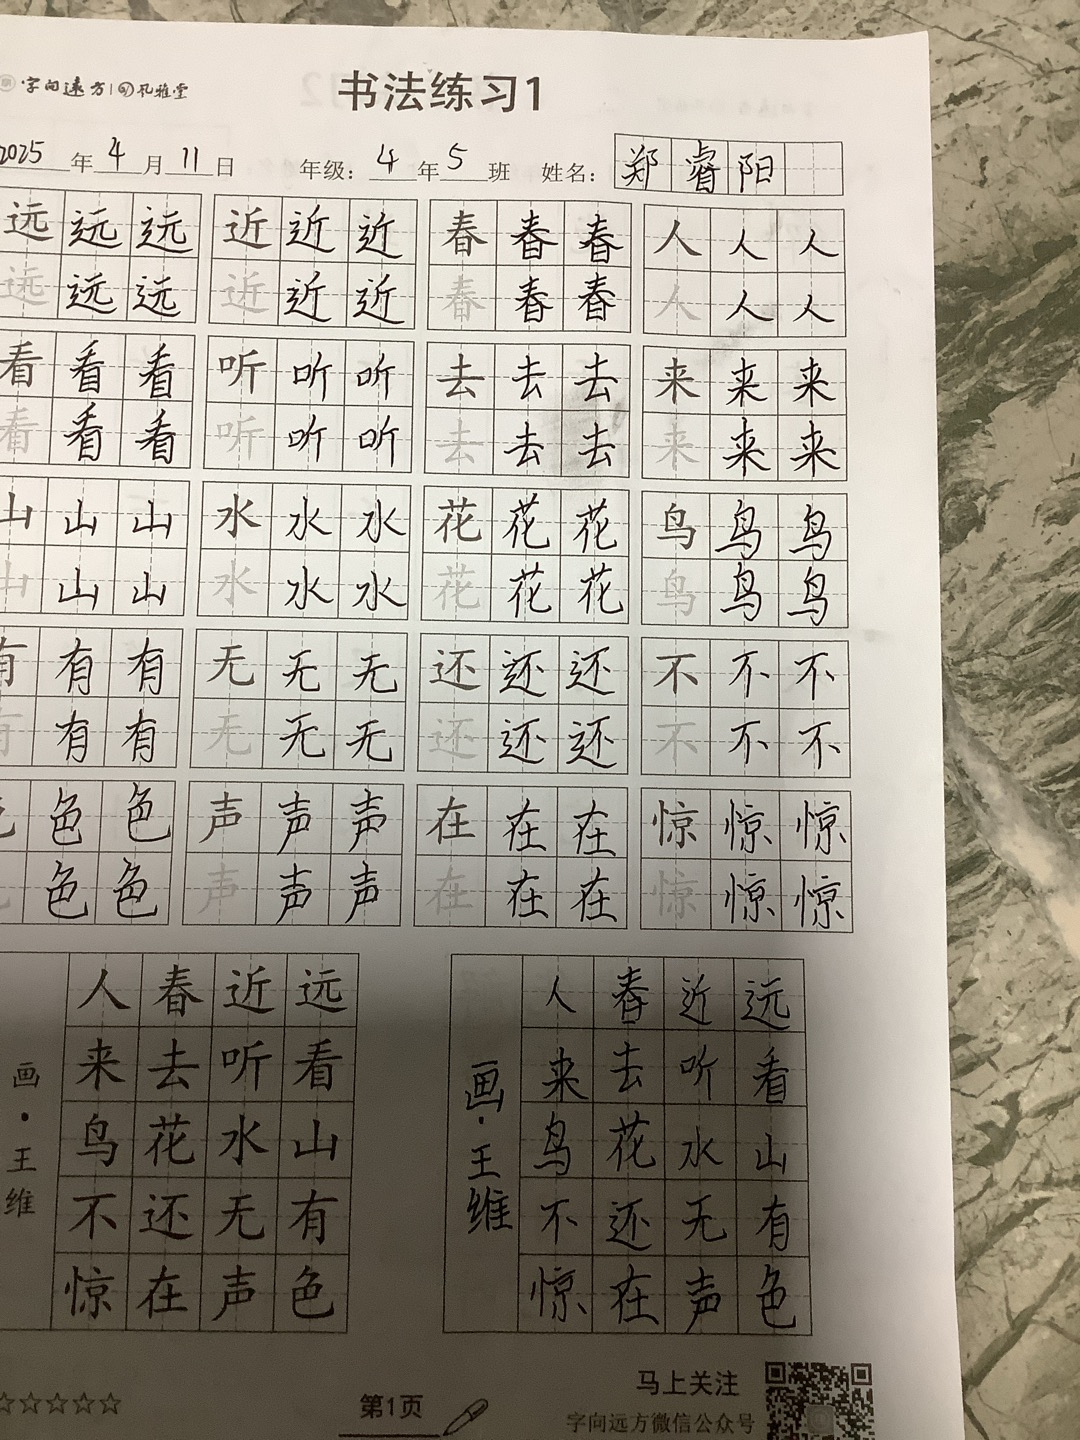 字向遠方 | 孔雅堂
书法练习1
2025年4月11日 年级：4年5班 姓名：郑睿阳
远远远 近近近 春春春 人人人
远远远 近近近 春春春 人人人
看看看 听听听 去去去 来来来
看看看 听听听 去去去 来来来
山山山 水水水 花花花 鸟鸟鸟
山山山 水水水 花花花 鸟鸟鸟
有有有 无无无 还还还 不不不
有有有 无无无 还还还 不不不
色色色 声声声 在在在 惊惊惊
色色色 声声声 在在在 惊惊惊
远看山有色
近听水无声
春去花还在
人来鸟不惊
画·王维
远看山有色
近听水无声
春去花还在
人来鸟不惊
画·王维
☆☆☆☆☆
第1页
马上关注
字向远方微信公众号